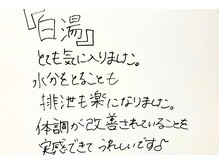 『白湯』
とても気に入りました。
水分をとることも
排泄も楽になりました。
体調が改善されていることを
実感できてうれしいですよ